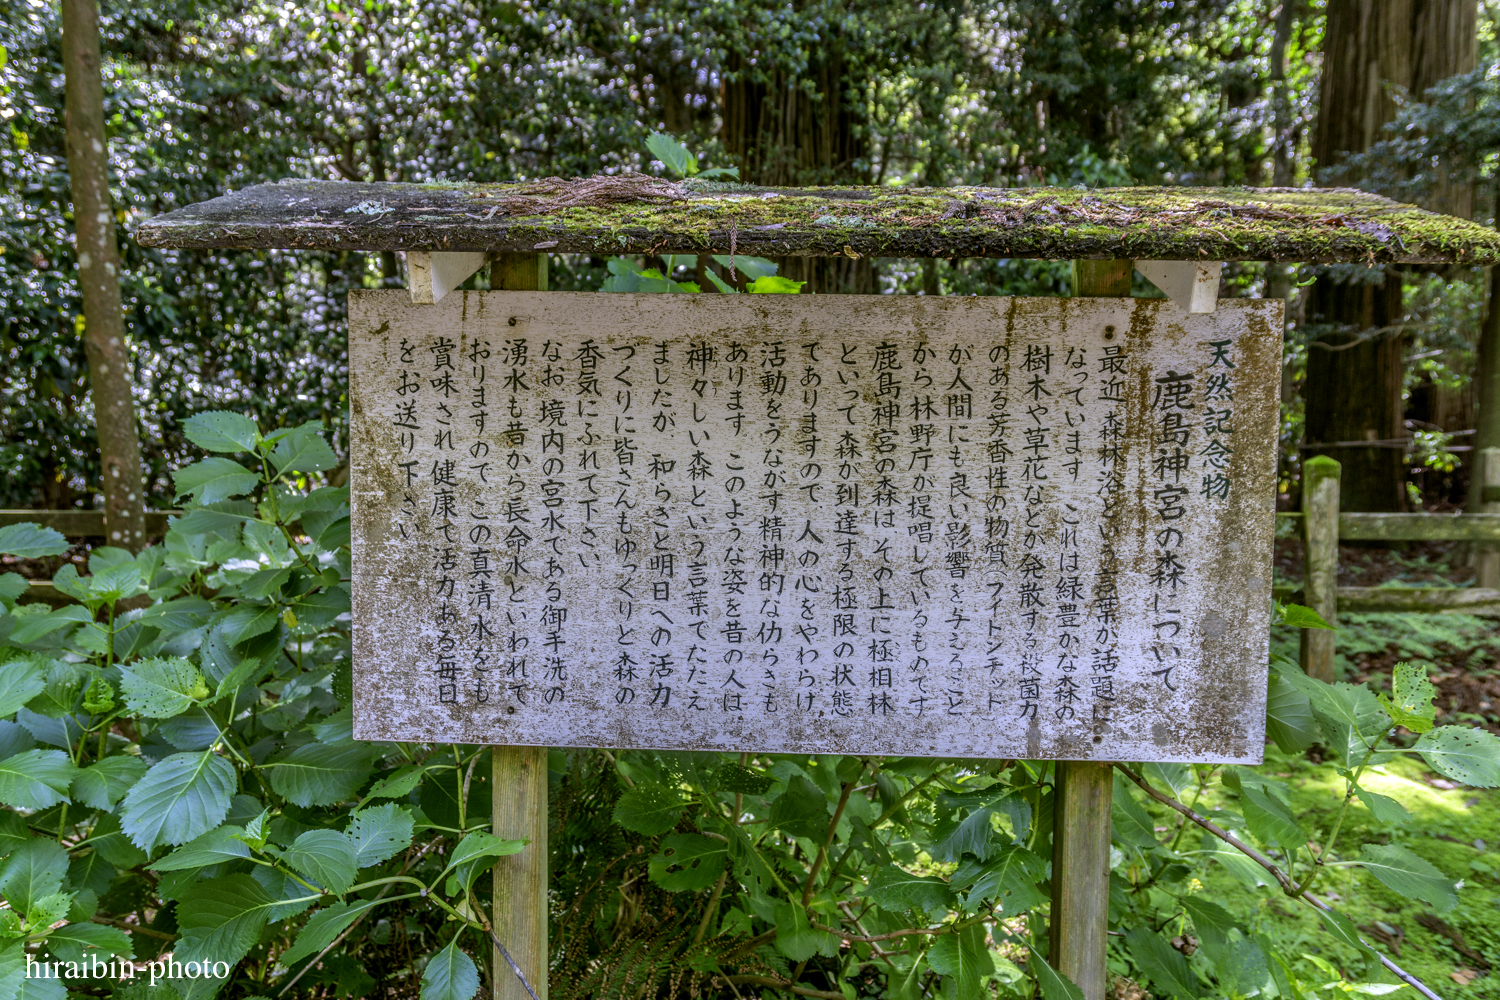 天然記念物
鹿島神宮の森について
最近、森林浴という言葉が話題に
なっています。これは緑豊かな森の
樹木や草花などが発散する殺菌力
のある芳香性の物質(フイトンチッド)
が人間にも良い影響を与えること
から林野庁が提唱しているものです
鹿島神宮の森は、その上に極相林
といって森が到達する極限の状態
でありますので、人の心をやわらげ
活動をうながす精神的な仂らきも
あります。このような姿を昔の人は
神々しい森という言葉でたたえ
ましたが、和らぎと明日への活力
づくりに皆さんもゆっくりと森の
香気にふれて下さい
なお、境内の宮水である御手洗の
湧水も昔から長命水といわれて
おりますので、この真清水をも
賞味され健康で活力ある毎日
をお送り下さい
hiraibin-photo